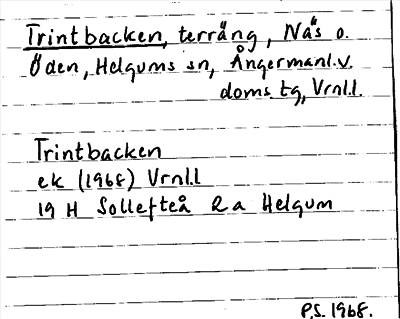 Trintbacken, terräng, Näs o.
Öden, Helgums sn, Ångermanl.v.
doms tg, Vrnl.l.
Trintbacken
ek (1968) Vrnl.l
19 H Sollefteå 2a Helgum
P.S. 1968.